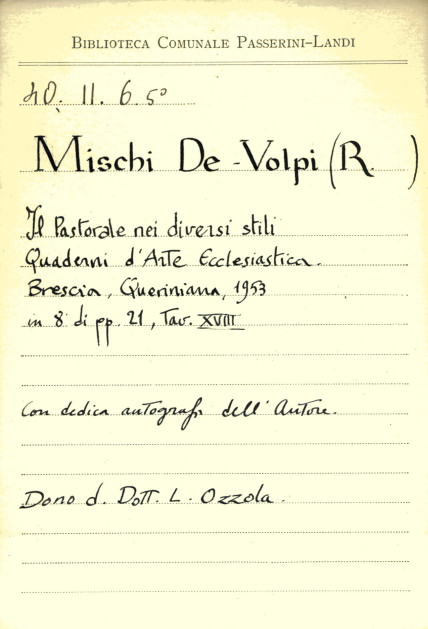 BIBLIOTECA COMUNALE PASSERINI-LANDI
4O. II. 6. 5º
Mischi De-Volpi (R. )
Il Pastorale nei diversi stili
Quaderni d'Arte Ecclesiastica.
Brescia, Queriniana, 1953
in 8º di pp. 21, Tav. XVIII
Con dedica autografa dell'Autore.
Dono d. Dott. L. Ozzola.